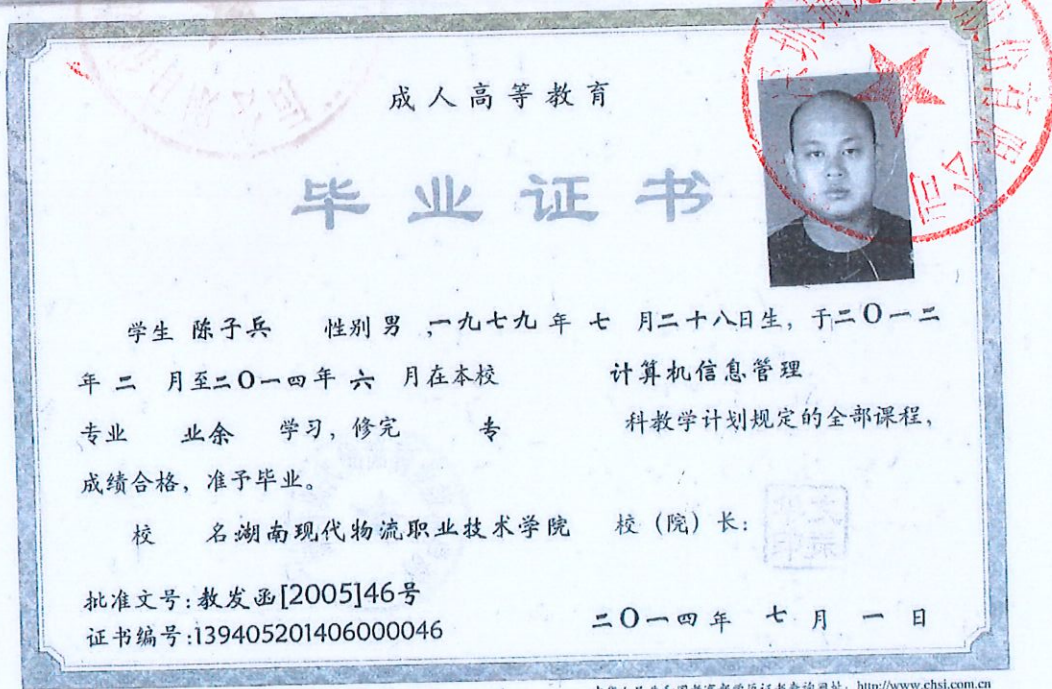 成人高等教育
毕业证书
学生 陈子兵 性别 男 ,一九七九 年 七 月二十八日生，于二〇一二
年 二 月至二〇一四年 六 月在本校 计算机信息管理
专业 业余 学习，修完 专 科教学计划规定的全部课程，
成绩合格，准予毕业。
校 名:湖南现代物流职业技术学院 校（院）长:
批准文号:教发函[2005]46号
证书编号:139405201406000046
二〇一四年 七 月 一 日
http://www.chsi.com.cn